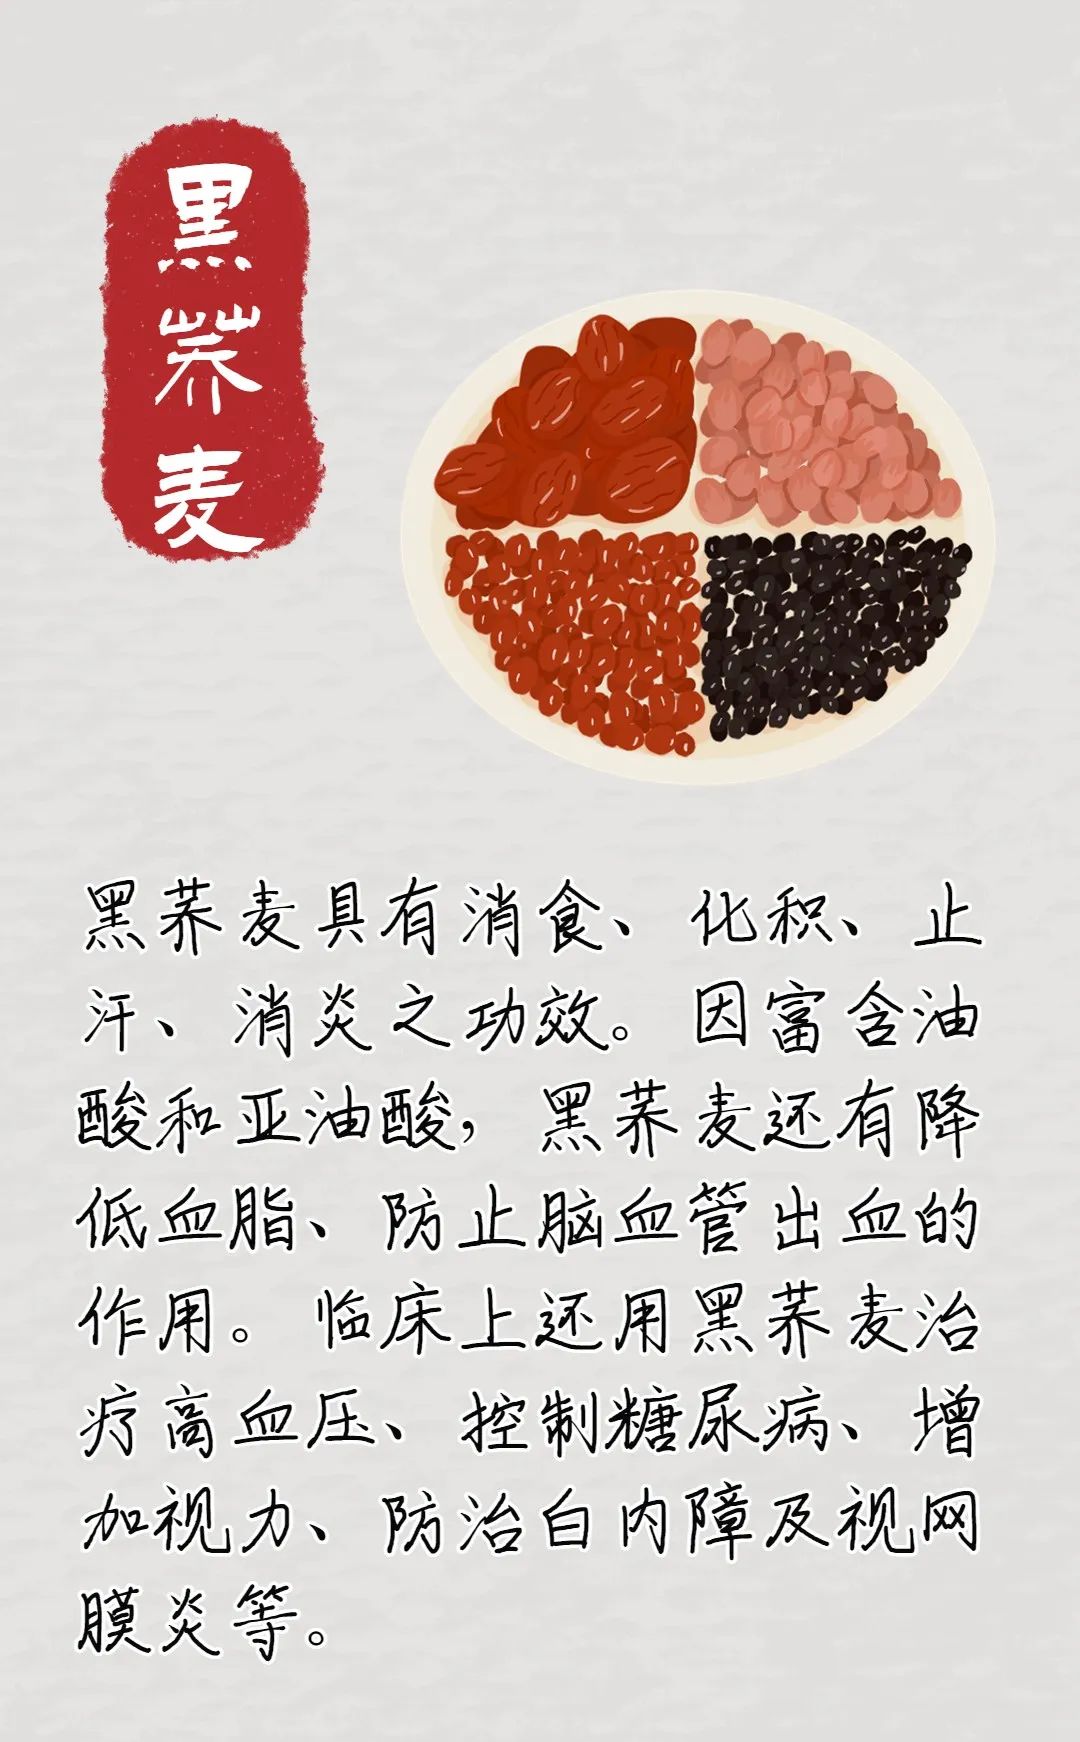 黑荞麦
黑荞麦具有消食、化积、止
汗、消炎之功效。因富含油
酸和亚油酸，黑荞麦还有降
低血脂、防止脑血管出血的
作用。临床上还用黑荞麦治
疗高血压、控制糖尿病、增
加视力、防治白内障及视网
膜炎等。